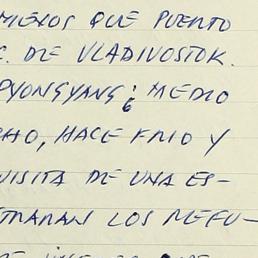 MEROS QUE PUERTO
DE VLADIVOSTOK.
PYONGYANG; MEDIO
HO, HACE FRIO Y
VISITA DE UNA ES-
TRARAN LOS REFU-